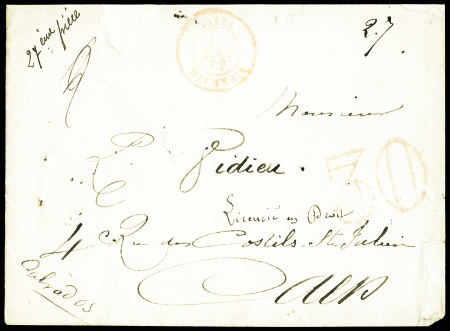 27ème pièce
27
Monsieur
L. Pidieu.
Licencié en Droit
4 Rue des Costils St. Julien
Caen
Calvados
30